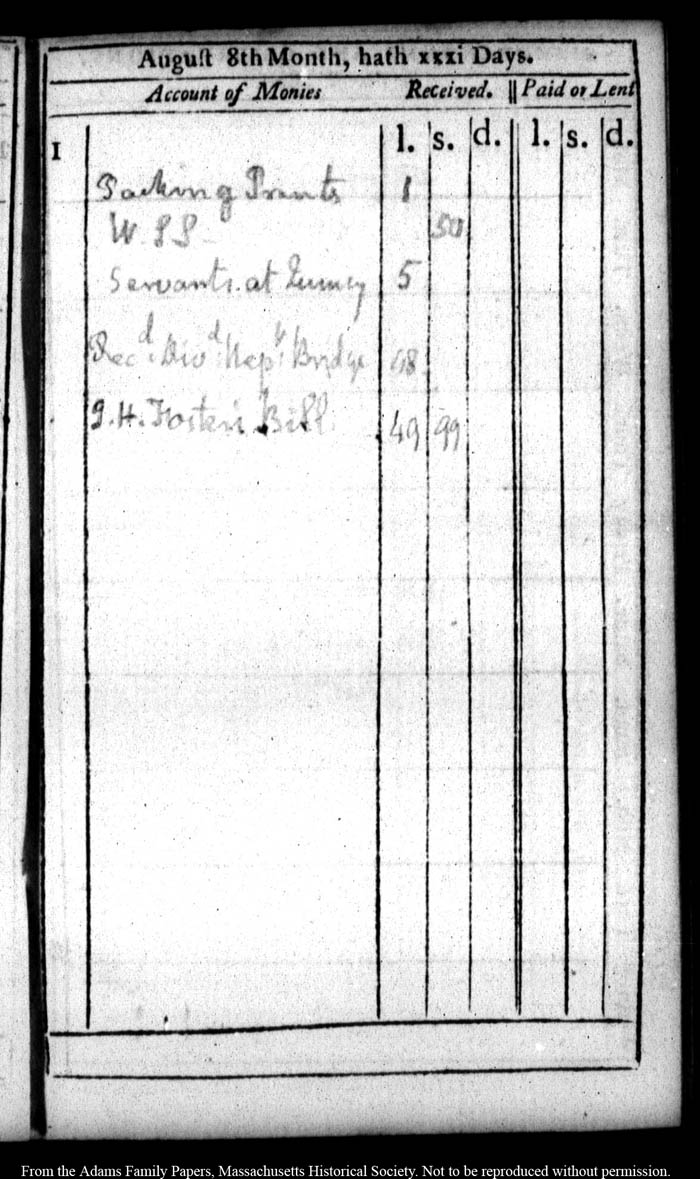 August 8th Month, hath xxxi Days.
Account of Monies Received. || Paid or Lent
1 l. s. d. l. s. d.
Packing 1
W. S S 50
Servants at Quincy 5
Rec.d Div.d Nep.t Bridge 48
J. H. Foster's Bill 49 99
From the Adams Family Papers, Massachusetts Historical Society. Not to be reproduced without permission.